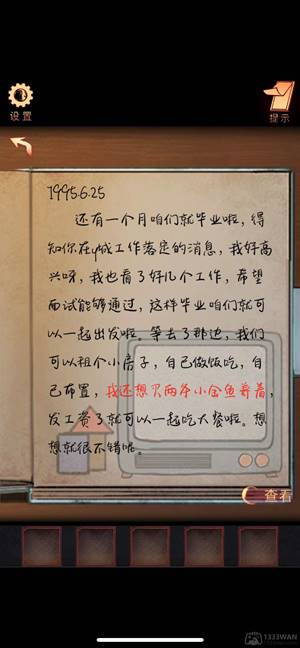 设置
提示
1995.6.25
还有一个月咱们就毕业啦，得
知你在中城工作落定的消息，我好高
兴呀，我也看了好几个工作，希望
面试能够通过，这样毕业咱们就可
以一起出发啦。等去了那边，我们
可以租个小房子，自己做饭吃，自
己布置，我还想买两条小金鱼养着，
发工资了就可以一起吃大餐啦。想
想就很不错呢。
查看
1333WAN